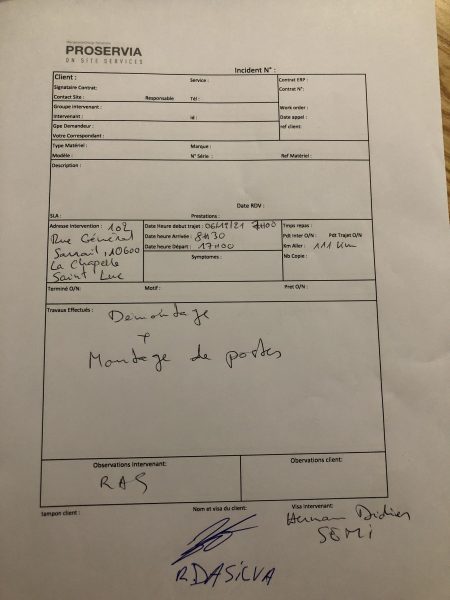 PROSERVIA
ON SITE SERVICES
Incident N° :
Client :
Service :
Contrat ERP :
Signataire Contrat:
Contrat N°:
Contact Site :
Responsable
Tél :
Groupe intervenant :
Work order :
Intervenant :
Id :
Date appel :
Gpe Demandeur :
ref client:
Votre Correspondant :
Type Matériel :
Marque :
Modèle :
N° Série :
Ref Matériel :
Description :
Date RDV :
SLA :
Prestations :
Adresse Intervention : 102
Rue Général
Sarrail, 10600
La Chapelle
Saint Luc
Date Heure debut trajet : 06/12/21 7H00
Date heure Arrivée : 8H30
Date heure Départ : 17H00
Symptomes :
Tmps repas :
Pdt Inter O/N : Pdt Trajet O/N
Km Aller : 111 Km
Nb Copie :
Terminé O/N:
Motif :
Pret O/N :
Travaux Effectués :
Démontage
+
Montage de postes
Observations Intervenant:
RAS
Obervations client:
tampon client :
Nom et visa du client:
RDASILVA
Visa intervenant:
Hermann Didier